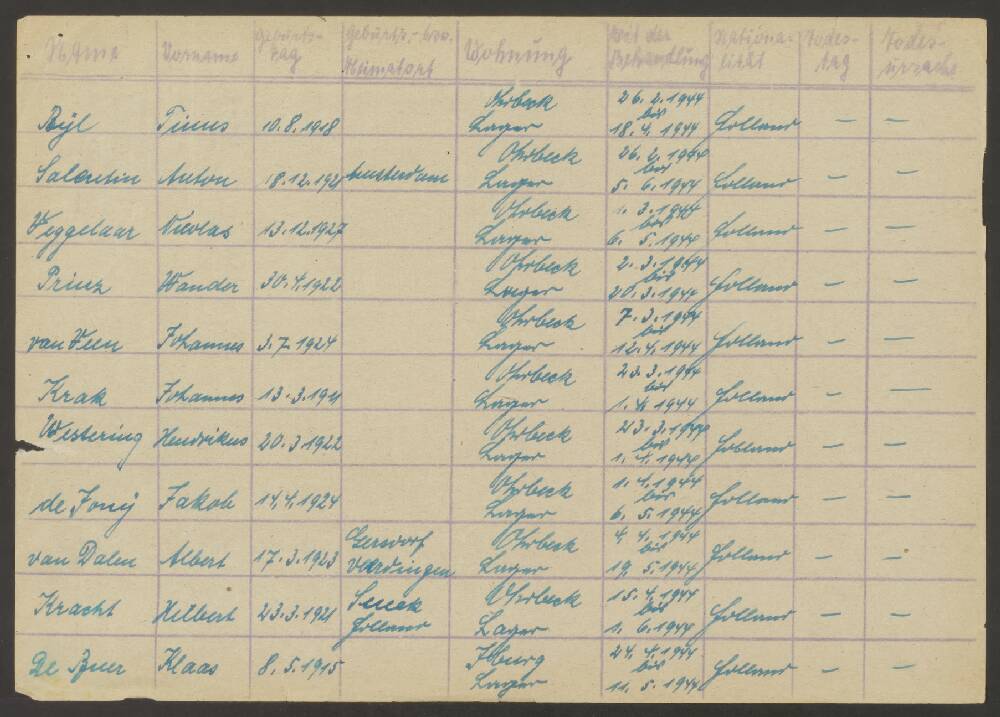 Name Vorname Geburts- tag Geburts.- bzw. Heimatort Wohnung Zeit der Behandlung Nationa- lität Todes- tag Todes- ursache
Bijl Tinus 10.8.1918 Ohrbeck Lager 26.2.1944 bis 18.4.1944 Holland — —
Salentin Anton 18.12.1921 Amsterdam Ohrbeck Lager 26.2.1944 bis 5.6.1944 Holland — —
Veggelaar Nicolas 13.12.1927 Ohrbeck Lager 1.3.1944 bis 6.5.1944 Holland — —
Prinz Wander 30.4.1922 Ohrbeck Lager 2.3.1944 bis 20.3.1944 Holland — —
van Veen Johannes 3.7.1924 Ohrbeck Lager 7.3.1944 bis 12.4.1944 Holland — —
Krak Johannes 13.3.1911 Ohrbeck Lager 23.3.1944 bis 1.4.1944 Holland — —
Westering Hendrikus 20.3.1922 Ohrbeck Lager 23.3.1944 bis 1.4.1944 Holland — —
de Jonij Jakob 14.4.1924 Ohrbeck Lager 1.4.1944 bis 6.5.1944 Holland — —
van Dalen Albert 17.3.1923 Gersdorf Ohrbeck Lager 4.4.1944 bis 19.5.1944 Holland — —
Kracht Hilbert 23.3.1921 Sneek Holland Ohrbeck Lager 15.4.1944 bis 1.6.1944 Holland — —
De Klaas 8.5.1915 Iburg Lager 24.4.1944 bis 11.5.1944 Holland — —